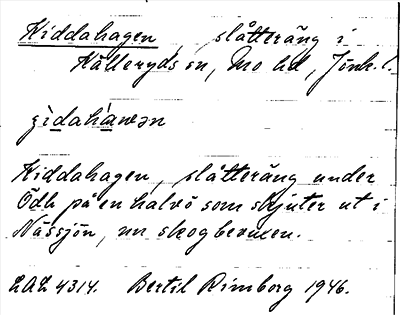 Kiddahagen, slåtteräng i
Kålleryds sn, Mo hd, Jönk. l.
Kiddahagen, slåtteräng under
Öda på en halvö som skjuter ut i
Nässjön, nu skogbevuxen.
LAL 4314. Bertil Rimborg 1946.